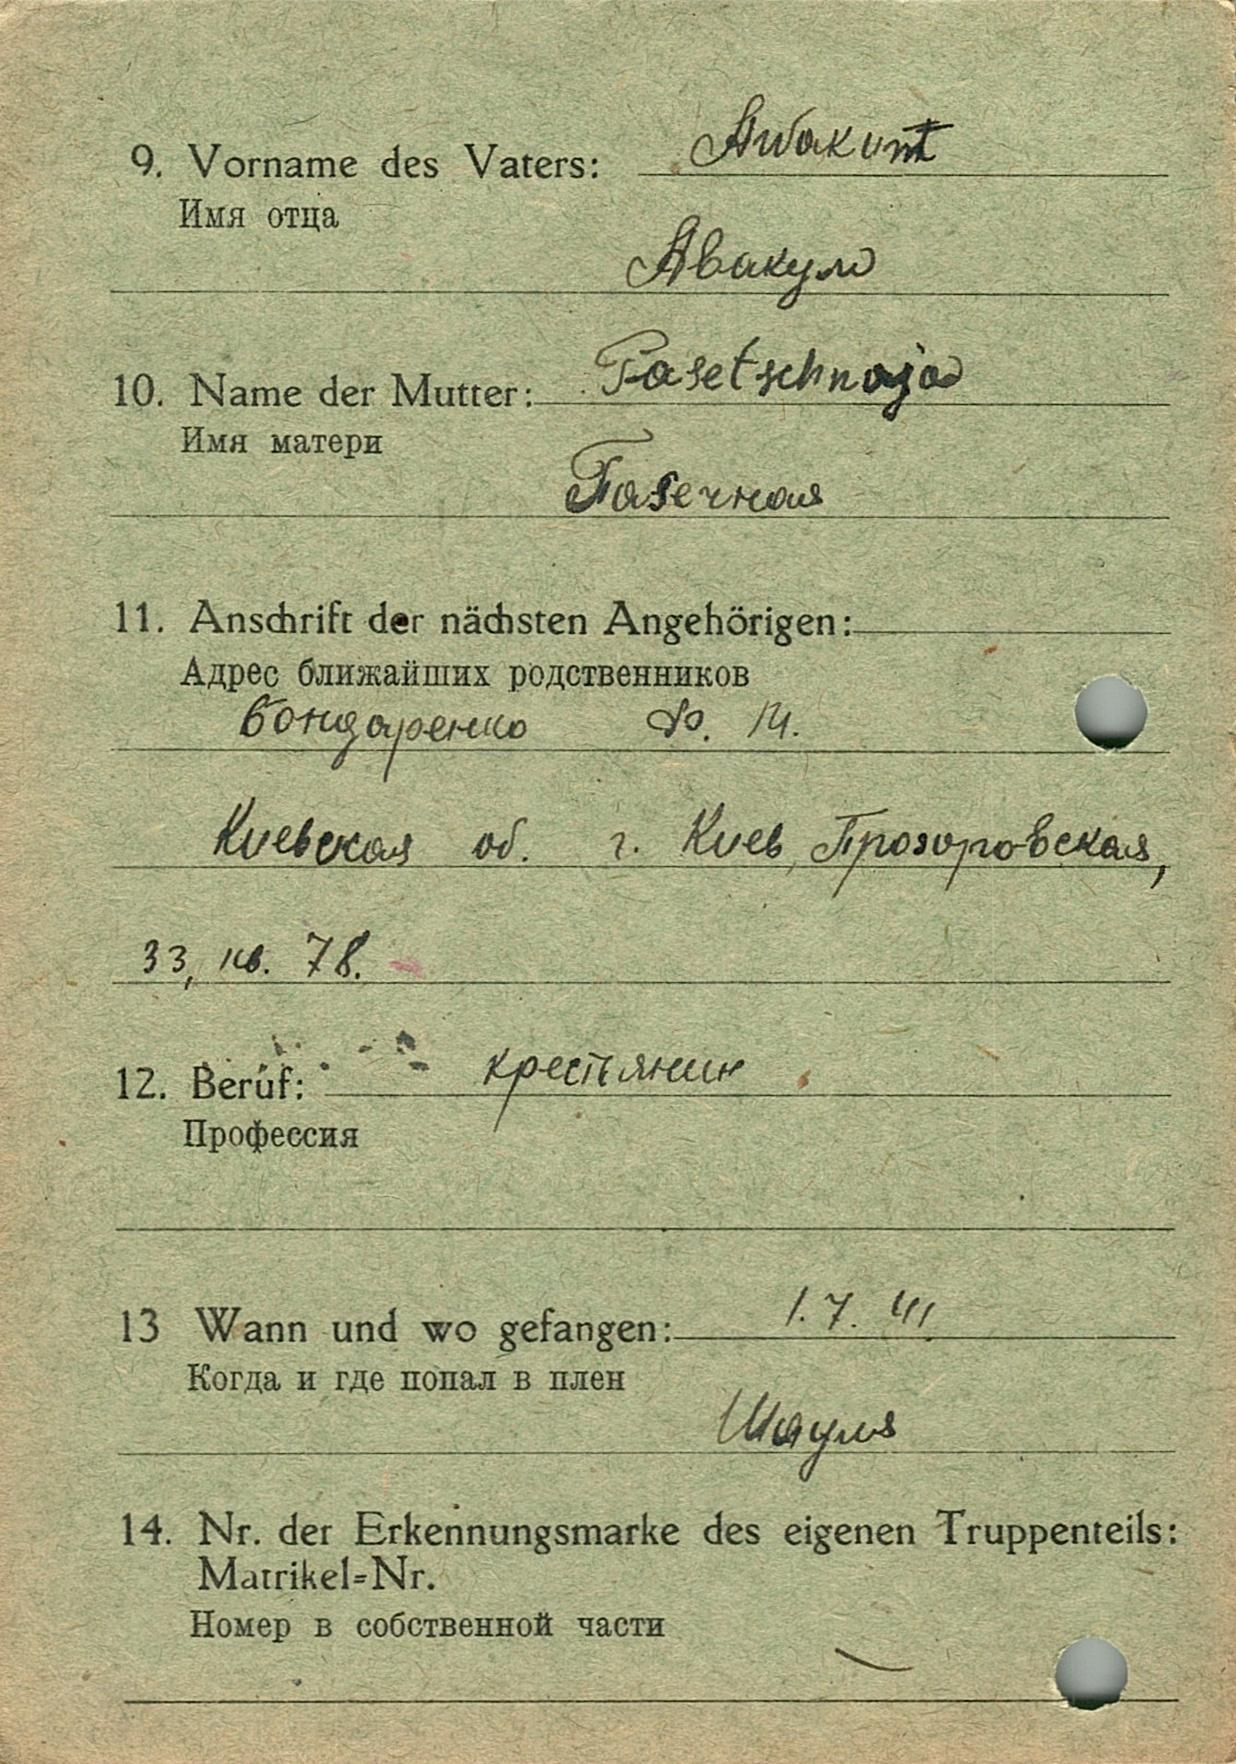 9. Vorname des Vaters: Awakum
Имя отца
Авакум
10. Name der Mutter: Pasetschnaja
Имя матери
Пазечная
11. Anschrift der nächsten Angehörigen:
Адрес ближайших родственников
Бондаренко
Киевская об. г. Киев, Прозоровская,
33, кв. 78.
12. Beruf: крестьянин
Профессия
13 Wann und wo gefangen: 1. 7. 41
Когда и где попал в плен
Шауля
14. Nr. der Erkennungsmarke des eigenen Truppenteils:
Matrikel=Nr.
Номер в собственной части